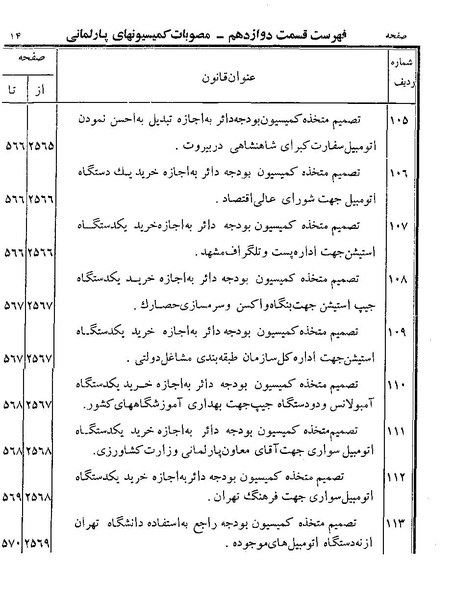 صفحه فهرست قسمت دوازدهم ـ مصوبات کمیسیونهای پارلمانی ۱۴
شماره ردیف عنوان قانون صفحه
از تا
۱۰۵ تصمیم متخذه کمیسیون بودجه دائر به اجازه تبدیل به احسن نمودن
اتومبیل سفارت کبرای شاهنشاهی در بیروت . ۲۵۶۵ ۵۶۶
۱۰۶ تصمیم متخذه کمیسیون بودجه دائر به اجازه خرید یک دستگاه
اتومبیل جهت شورای عالی اقتصاد . ۲۵۶۶ ۵۶۶
۱۰۷ تصمیم متخذه کمیسیون بودجه دائر به اجازه خرید یکدستگاه
استیشن جهت اداره پست و تلگراف مشهد . ۲۵۶۶ ۵۶۶
۱۰۸ تصمیم متخذه کمیسیون بودجه دائر به اجازه خرید یکدستگاه
جیپ استیشن جهت بنگاه واکسن و سرم سازی حصارک . ۲۵۶۷ ۵۶۷
۱۰۹ تصمیم متخذه کمیسیون بودجه دائر به اجازه خرید یکدستگاه
استیشن جهت اداره کل سازمان طبقه بندی مشاغل دولتی . ۲۵۶۷ ۵۶۷
۱۱۰ تصمیم متخذه کمیسیون بودجه دائر به اجازه خرید یکدستگاه
آمبولانس و دو دستگاه جیپ جهت بهداری آموزشگاههای کشور. ۲۵۶۷ ۵۶۸
۱۱۱ تصمیم متخذه کمیسیون بودجه دائر به اجازه خرید یکدستگاه
اتومبیل سواری جهت آقای معاون پارلمانی وزارت کشاورزی. ۲۵۶۸ ۵۶۸
۱۱۲ تصمیم متخذه کمیسیون بودجه دائر به اجازه خرید یکدستگاه
اتومبیل سواری جهت فرهنگ تهران . ۲۵۶۸ ۵۶۹
۱۱۳ تصمیم متخذه کمیسیون بودجه راجع به استفاده دانشگاه تهران
از نه دستگاه اتومبیل های موجوده . ۲۵۶۹ ۵۷۰